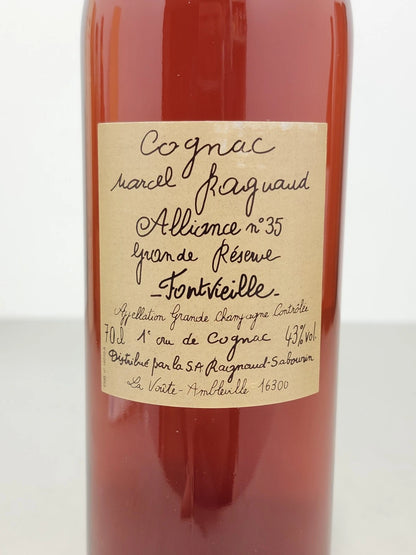 Cognac
Marcel Ragnaud
Alliance n°35
Grande Réserve
-Fontvieille-
Appellation Grande Champagne Contrôlée
70cl 1er cru de Cognac 43%vol.
Distribué par la S.A Ragnaud-Sabourin
La Voûte - Ambleville 16300